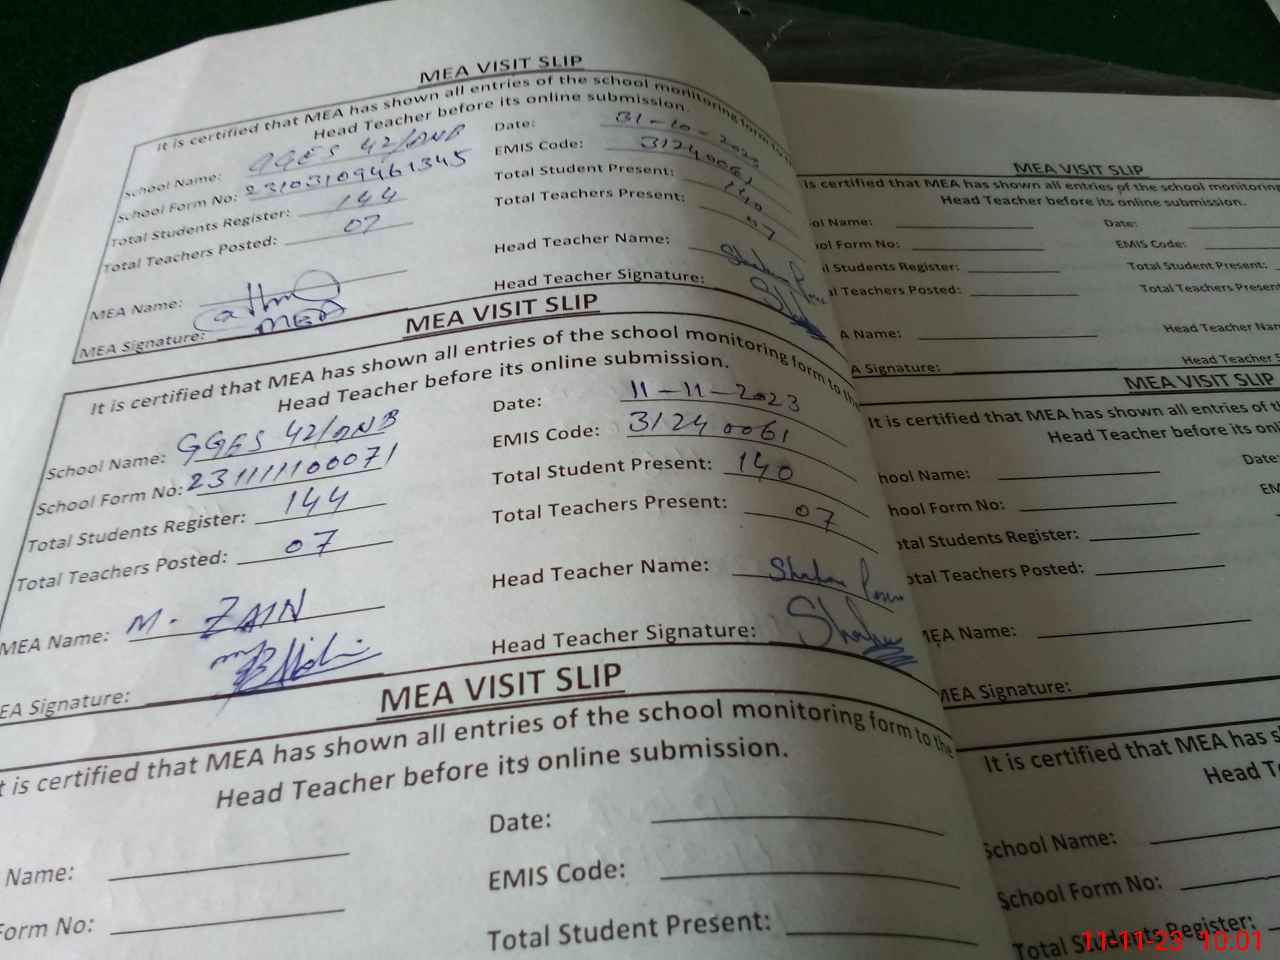 MEA VISIT SLIP
It is certified that MEA has shown all entries of the school monitoring form to the
Head Teacher before its online submission.
School Name: GGES 42/DNB Date: 31-10-2023
School Form No: 23103109461345 EMIS Code: 31240061
Total Students Register: 144 Total Student Present: 140
Total Teachers Posted: 07 Total Teachers Present: 07
MEA Name: Head Teacher Name:
MEA Signature: MEA Head Teacher Signature:
MEA VISIT SLIP
It is certified that MEA has shown all entries of the school monitoring form to the
Head Teacher before its online submission.
School Name: GGES 42/DNB Date: 11-11-2023
School Form No: 231111100071 EMIS Code: 31240061
Total Students Register: 144 Total Student Present: 140
Total Teachers Posted: 07 Total Teachers Present: 07
MEA Name: M. ZAIN Head Teacher Name:
EA Signature: Head Teacher Signature:
MEA VISIT SLIP
t is certified that MEA has shown all entries of the school monitoring form to the
Head Teacher before its online submission.
Name: Date:
Form No: EMIS Code:
Total Student Present:
MEA VISIT SLIP
is certified that MEA has shown all entries of the school monitoring
Head Teacher before its online submission.
ol Name: Date:
ol Form No: EMIS Code:
l Students Register: Total Student Present:
l Teachers Posted: Total Teachers Present
A Name: Head Teacher Nam
A Signature: Head Teacher S
MEA VISIT SLIP
It is certified that MEA has shown all entries of t
Head Teacher before its onl
hool Name: Date:
hool Form No: EM
otal Students Register:
otal Teachers Posted:
MEA Name:
MEA Signature:
It is certified that MEA has s
Head T
School Name:
School Form No:
Total Students Register:
11-11-23 10:01